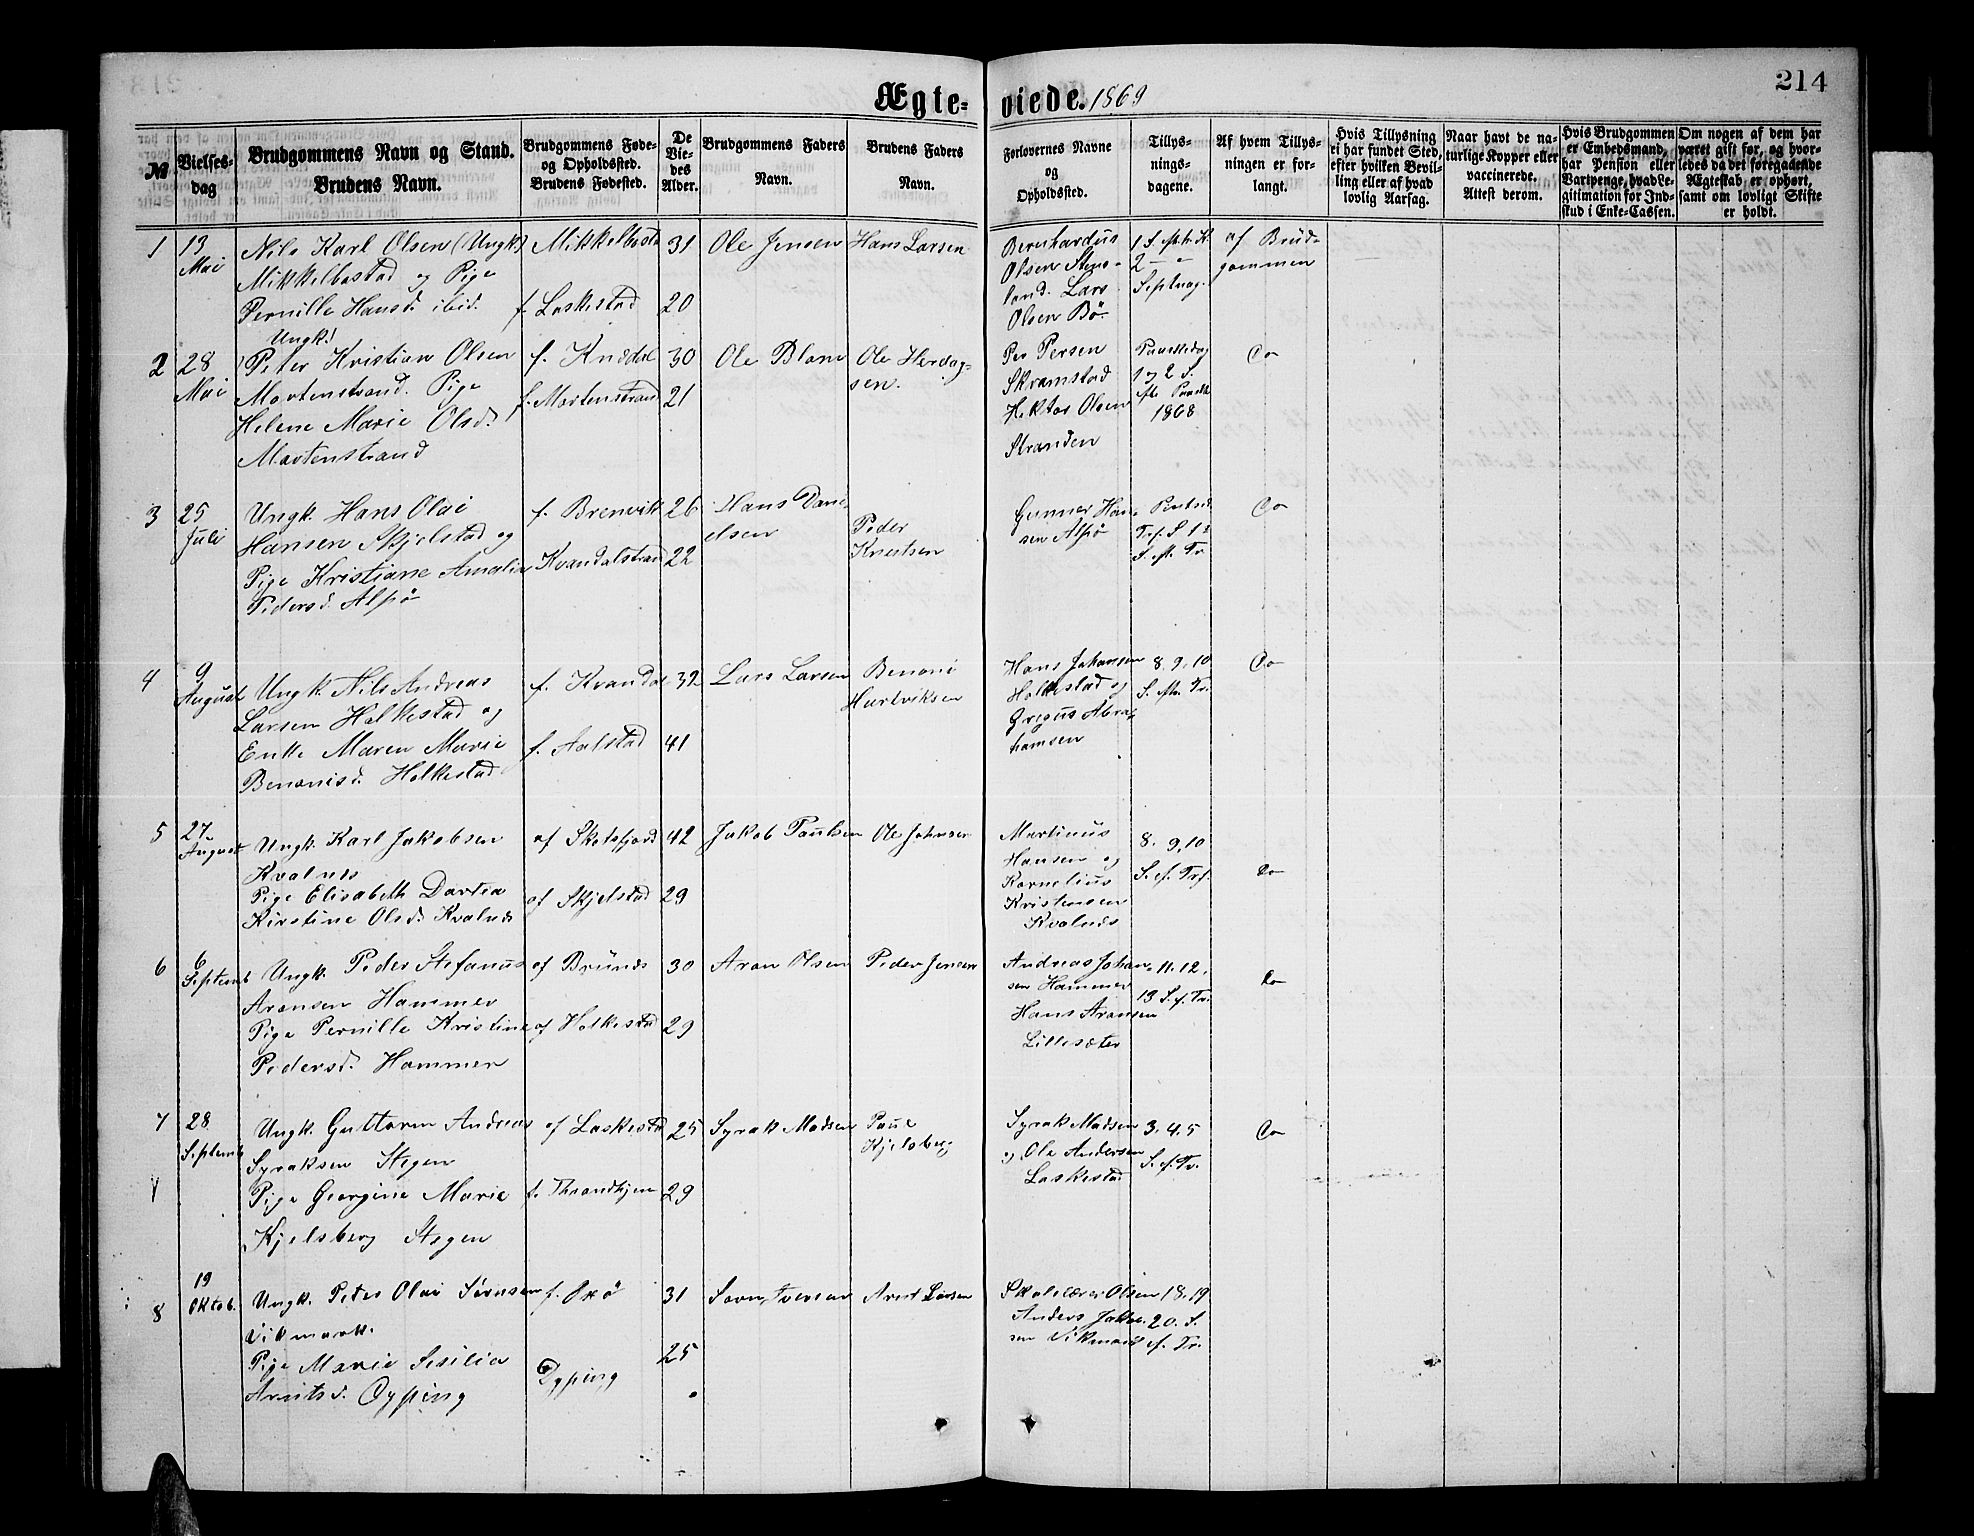 214
Ægte- viede. 1869
№
Vielses-
dag
Brudgommens Navn og Stand.
Brudens Navn.
Brudgommens Føde-
og Opholdssted.
Brudens Fødested.
De
Vie-
des
Alder.
Brudgommens Faders
Navn.
Brudens Faders
Navn.
Forlovernes Navne
og
Opholdssted.
Tillys-
nings-
dagene.
Af hvem Tillys-
ningen er for-
langt.
Hvis Tillysning
ei har fundet Sted,
efter hvilken Bevil-
ling eller af hvad
lovlig Aarsag.
Naar havt de na-
turlige Kopper eller
vaccinerede.
Attest derom.
Hvis Brudgommen
er Embedsmand,
har Pension eller
Vartpenge, hvad Le-
gitimation for Ind-
skud i Enke-Cassen.
Om nogen af dem har
været gift før, og hvor-
ledes da det foregaaende
Ægteskab er ophørt,
samt om lovligt Skifte
er holdt.
1
13
Mai
Nils Karl Olsen (Ungk.)
Mikkelbostad og Pige
Pernille Hansd. ibid.
Mikkelbost
f. Laskestad
31
20
Ole Jensen
Hans Larsen
Bernhardus
Olsen Stens-
land. Lars
Olsen Bö
2 - "
Septuag.
af Brud-
gommen
2
28
Mai
Ungk.
Peter Kristian Olsen
Mortenstrand. Pige
Helene Marie Olsd.
Mortenstrand
f. Knædal
f. Mortenstrand
30
21
Ole Blom
Ole Herdag-
sen.
Per Persen
Skramstad
Hektor Olsen
Stranden
Paaskedag
1 og 2 S.
eft. Paaske
1868
Do
3
25
Juli
Ungk. Hans Olai
Hansen Skjelstad og
Pige Kristiane Amalia
Pedersd. Alpö
f. Brenvik
Kvandalstrand
26
22
Hans Dani-
elsen
Peder
Knutsen
Gunner Han-
sen Alpö
Pintsed.
Trf. S 1ste
S. eft. Tr.
Do
4
9
August
Ungk. Nils Andreas
Larsen Holkestad og
Enke Maren Marie
Benonisd. Holkestad
f. Kvandal
f. Aalstad
32
41
Lars Larsen
Benoni
Hartviksen
Hans Johansen
Holkestad og
Gregus Abra-
hamsen
8. 9. 10
S. eft. Tr.
Do
5
27
August
Ungk. Karl Jakobsen
Kvalnes
Pige Elisabeth Dortea
Kirstine Olsd. Kvalnes
af Skotsfjord
af Skjelstad
42
29
Jakob Paulsen
Ole Johnsen
Martinus
Hansen og
Kornelius
Kristensen
Kvalnæs
8. 9. 10
S. ef. Trf.
Do
6
6
Septemb
Ungk. Peder Stefanus
Aronsen Hammer
Pige Pernille Kristine
Pedersd. Hammer
af Brunes
af Holkestad
30
29
Aron Olsen
Peder Jensen
Andreas Johan-
sen Hammer
Hans Aronsen
Lillesæter
11. 12.
13 S. ef. Tr.
Do
7
28
Septemb
Ungk. Guttorm Andreas
Syraksen Stegen
Pige Georgine Marie
Kjelsberg Stegen
af Laskestad
f. Throndhjem
25
29
Syrak Madsen
Paul
Kjelsberg
Syrak Madsen
og Ole Andersen
Laskestad
3. 4. 5
S. ef. Tr.
Do
8
19
Oktob.
Ungk. Peter Olai Sörensen
Vikmark.
Pige Marie Sesilia
Arntsd. Oppeng
f. Skö
31
25
Sören Iversen
Arnt Larsen
Skolelærer Olsen
Anders Jakob-
sen Vikmark
18. 19
20. S.
ef. Tr.